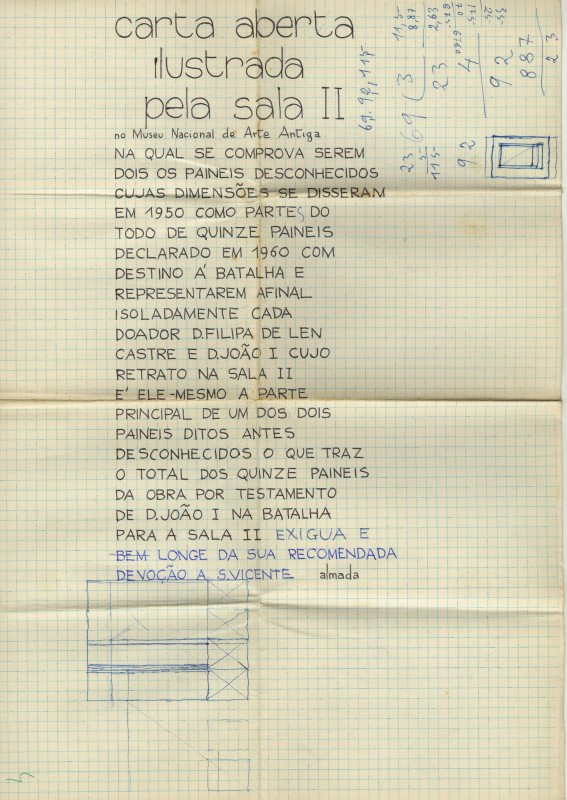 carta aberta
ilustrada
pela sala II
no Museu Nacional de Arte Antiga
NA QUAL SE COMPROVA SEREM
DOIS OS PAINEIS DESCONHECIDOS
CUJAS DIMENSÕES SE DISSERAM
EM 1950 COMO PARTES DO
TODO DE QUINZE PAINEIS
DECLARADO EM 1960 COM
DESTINO Á BATALHA E
REPRESENTAREM AFINAL
ISOLADAMENTE CADA
DOADOR D.FILIPA DE LEN
CASTRE E D.JOÃO I CUJO
RETRATO NA SALA II
E' ELE-MESMO A PARTE
PRINCIPAL DE UM DOS DOIS
PAINEIS DITOS ANTES
DESCONHECIDOS O QUE TRAZ
O TOTAL DOS QUINZE PAINEIS
DA OBRA POR TESTAMENTO
DE D.JOÃO I NA BATALHA
PARA A SALA II EXIGUA E
BEM LONGE DA SUA RECOMENDADA
DEVOÇÃO A S.VICENTE almada
23
92
92
887
23